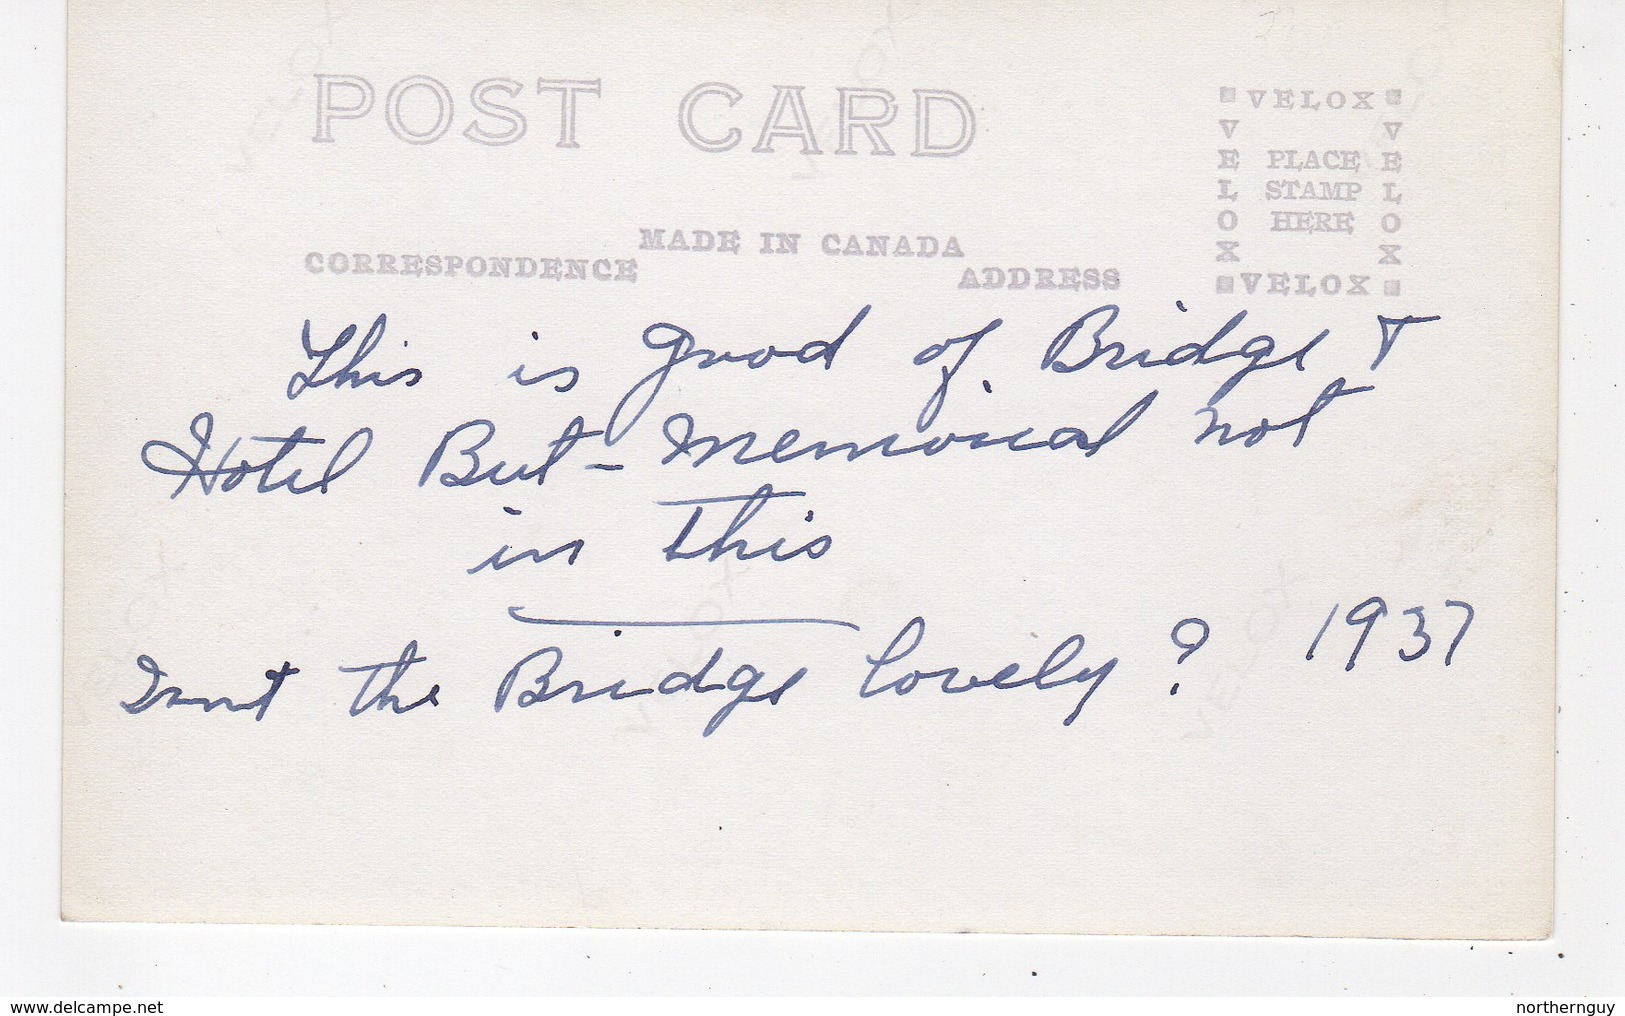 POST CARD
VELOX
VELOX
VELOX
PLACE
STAMP
HERE
VELOX
MADE IN CANADA
CORRESPONDENCE
ADDRESS
This is good of Bridge &
Hotel But - Memorial not
in this
Isnt the Bridge lovely? 1937
VELOX
VELOX
VELOX
VELOX
VELOX
www.delcampe.net
northernguy